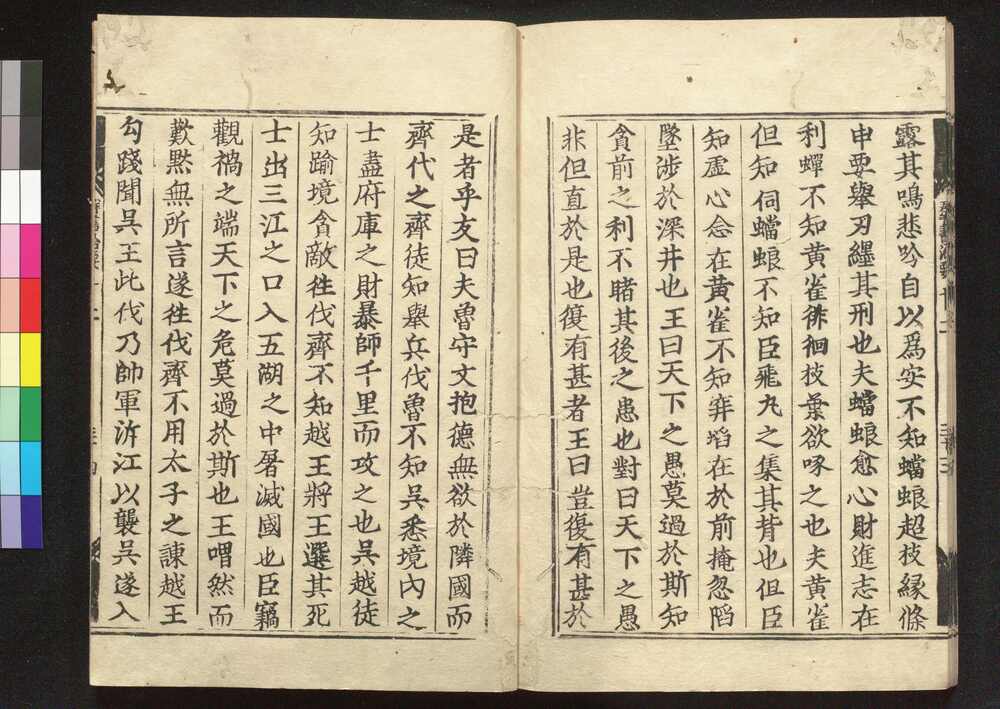 露其鳴悲吟自以爲安不知蟷蜋超枝縁條
申要舉刃纆其刑也夫蟷蜋愈心財進志在
利蟬不知黄雀徘徊枝葉欲啄之也夫黄雀
但知伺蟷蜋不知臣飛丸之集其背也但臣
知虚心念在黄雀不知穽埳在於前掩忽陷
墜渉於深井也王曰天下之愚莫過於斯知
貪前之利不睹其後之患也對曰天下之愚
非但直於是也復有甚者王曰豈復有甚於
是者乎友曰夫魯守文抱德無欲於隣國而
齊代之齊徒知舉兵伐魯不知呉悉境内之
士盡府庫之財暴師千里而攻之也呉越徒
知踰境貪敵徃伐齊不知越王將王選其死
士出三江之口入五湖之中屠滅國也臣竊
觀禍之端天下之危莫過於斯也王喟然而
歎黙無所言遂徃伐齊不用太子之諌越王
勾踐聞呉王此伐乃帥軍泝江以襲呉遂入